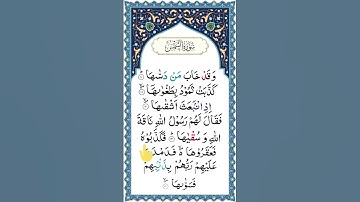 سُوْرَةُ الشَّمْسِ
وَقَدْ خَابَ مَنْ دَسّٰىهَا ۝
كَذَّبَتْ ثَمُوْدُ بِطَغْوٰىهَا ۝
اِذِ انْۢبَعَثَ اَشْقٰىهَا ۝
فَقَالَ لَهُمْ رَسُوْلُ اللّٰهِ نَاقَةَ
اللّٰهِ وَسُقْيٰهَا ۝ فَكَذَّبُوْهُ
فَعَقَرُوْهَا ۙ فَدَمْدَمَ
عَلَيْهِمْ رَبُّهُمْ بِذَنْۢبِهِمْ
فَسَوّٰىهَا ۝